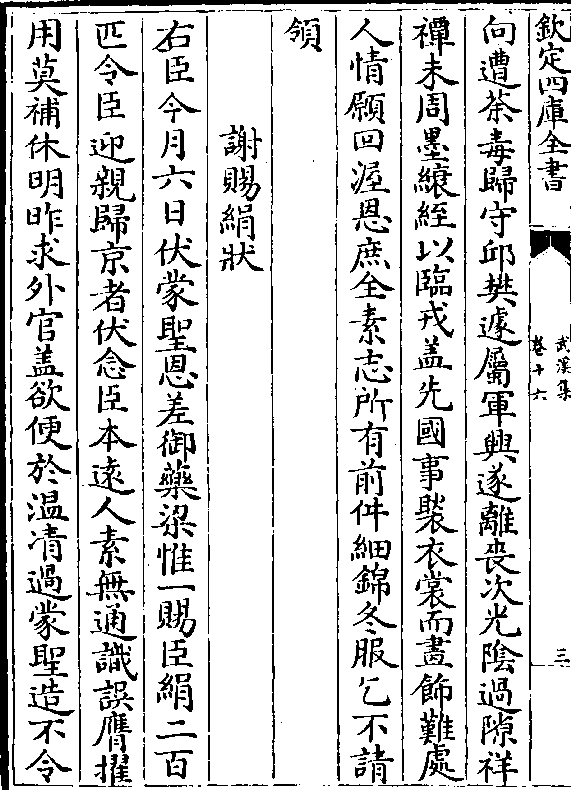 欽定四庫全書
武溪集
卷十六
三
向遭荼毒歸守邱樊遽屬軍興遂離喪次光陰過隙祥
禫未周墨縗絰以臨戎盖先國事襞衣裳而晝飾難處
人情願回渥恩庶全素志所有前件細錦冬服乞不請
領
謝賜絹狀
右臣今月六日伏蒙聖恩差御藥梁惟一賜臣絹二百
匹令臣迎親歸京者伏念臣本逺人素無通識誤膺擢
用莫補休明昨求外官盖欲便於温凊過蒙聖造不令